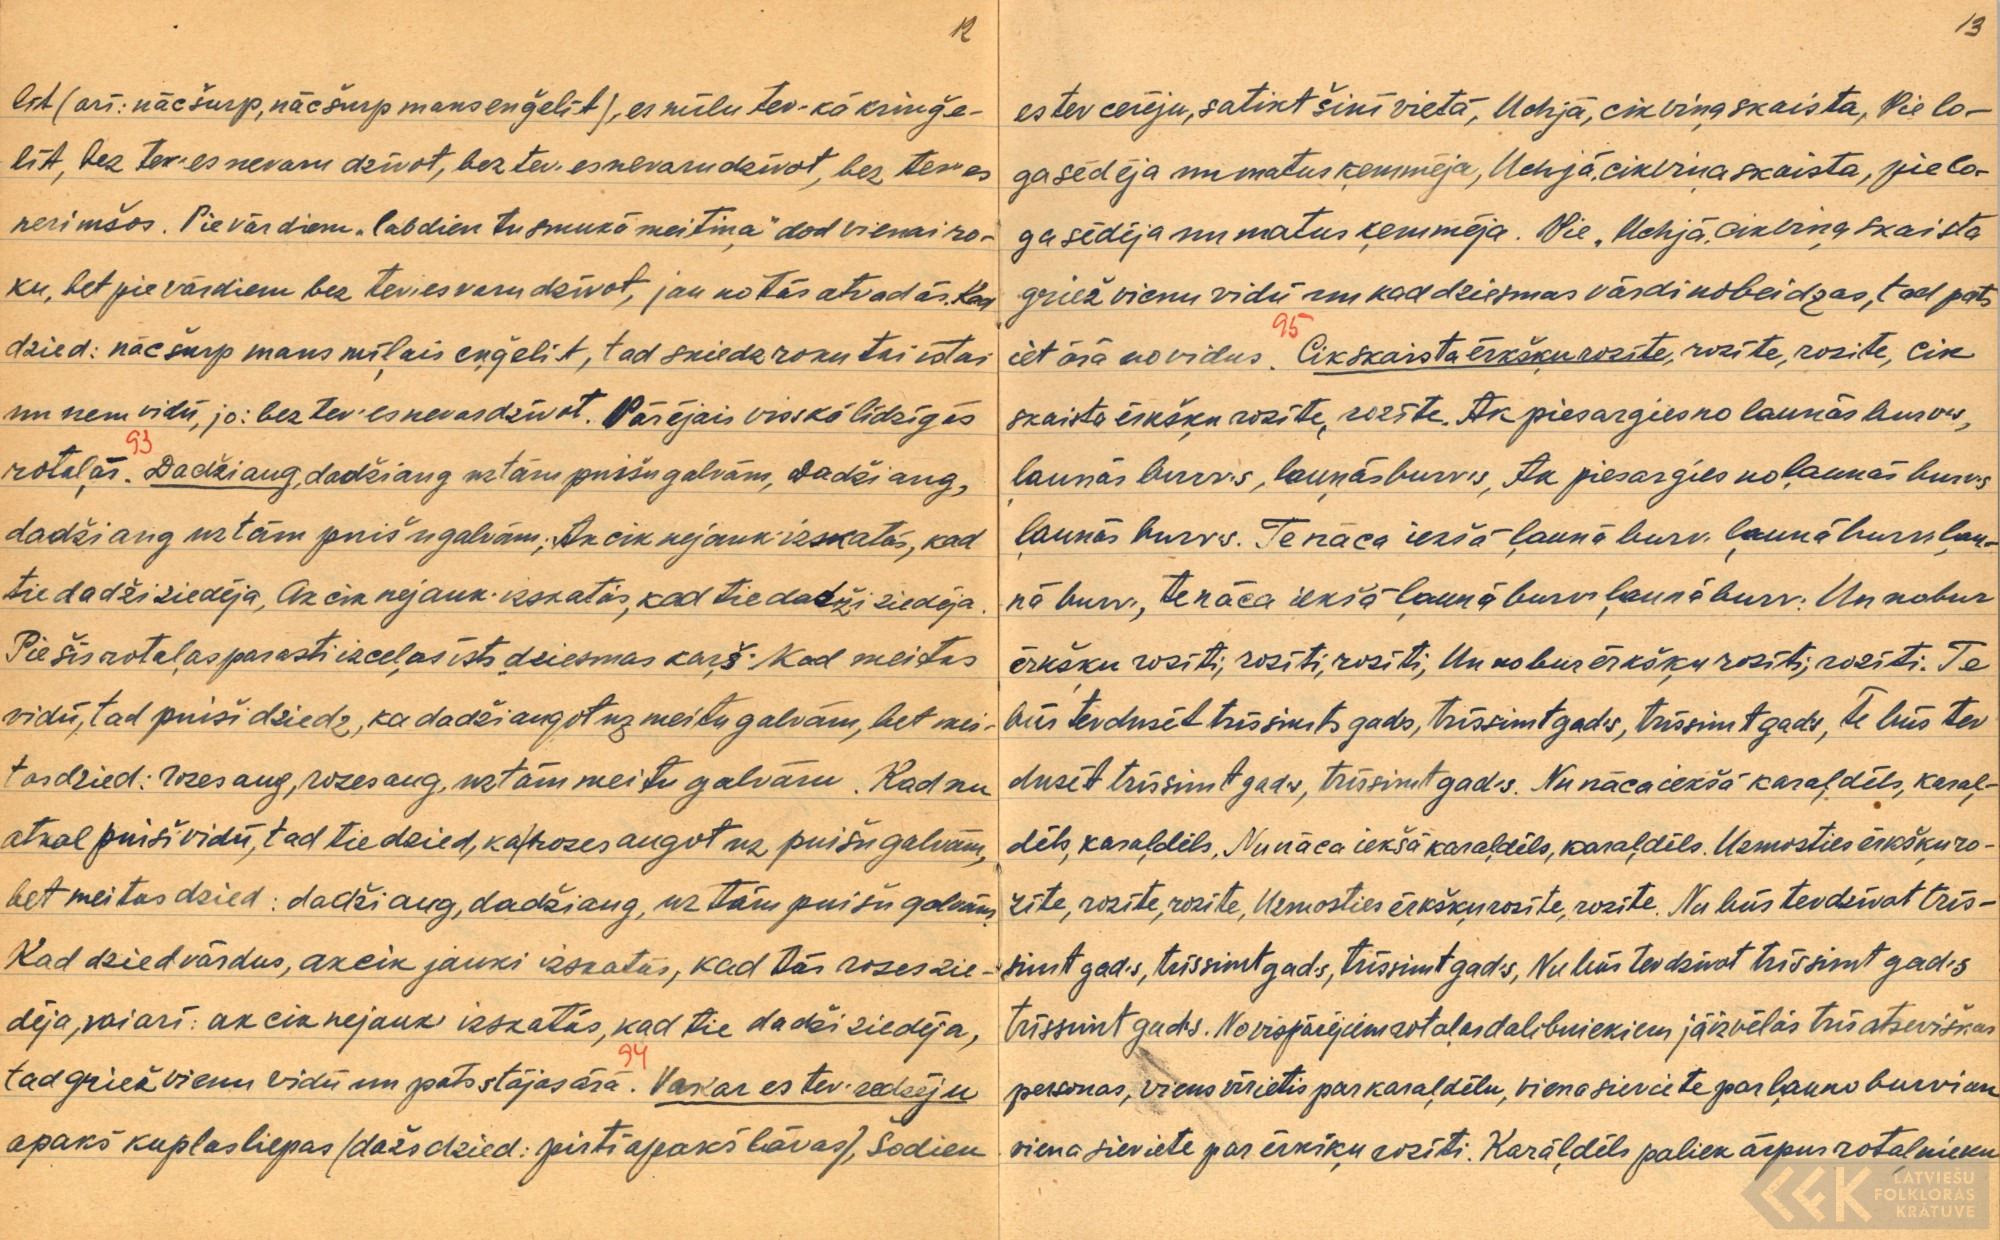 12
līt (arī: nāc šurp, nāc šurp mans eņģelīt), es mīlu tev' kā kringe-
līt, bez tev' es nevaru dzīvot, bez tev' es nevaru dzīvot, bez tev' es
nerimšos. Pie vārdiem „labdien tu smukā meitiņa" dod vienai ro-
ku, bet pie vārdiem bez tev' es varu dzīvot, jau no tās atvadās. Kad
dzied: nāc šurp mans mīļais eņģelīt, tad sniedz roku tai īstai
un ņem vidū, jo: bez tev' es nevar dzīvot. Pārējais viss kā līdzīgās
93
rotaļās. Dadži aug, dadži aug uz tām puišu galvām, Dadži aug,
dadži aug uz tām puišu galvām, Ak cik nejauk' izskatās, kad
tie dadži ziedēja, Ak cik nejauk' izskatās, kad tie dadži ziedēja.
Pie šīs rotaļas parasti izceļas īsts dziesmas karš. Kad meitas
vidū, tad puiši dzied, ka dadži augot uz meitu galvām, bet mei-
tas dzied: rozes aug, rozes aug, uz tām meitu galvām. Kad nu
atkal puiši vidū, tad tie dzied, ka rozes augot uz puišu galvām,
bet meitas dzied: dadži aug, dadži aug, uz tām puišu galvām.
Kad dzied vārdus, ak cik jauki izskatās, kad tās rozes zie-
dēja, vai arī: ak cik nejauk' izskatās, kad tie dadži ziedēja,
94
tad griež vienu vidū un pats stājas ārā. Vakar es tev' redzēju
apakš kuplas liepas (dažs dzied: pirtī apakš lāvas), Šodien
13
es tev cerēju, satikt šinī vietā, Uchjā, cik viņa skaista, Pie lo-
ga sēdēja un matus ķemmēja, Uchjā, cik viņa skaista, pie lo-
ga sēdēja un matus ķemmēja. Pie „Uchjā, cik viņa skaista
griež vienu vidū un kad dziesmas vārdi nobeidzas, tad pats
95
iet ārā no vidus. Cik skaista ērkšķu rozīte, rozīte, rozīte, cik
skaista ērkšķu rozīte, rozīte. Ak piesargies no ļaunās burvs,
ļaunās burv's, ļaunās burv's, Ak piesargies no ļaunās burv's
ļaunās burv's. Te nāca iekšā ļaunā burv' ļaunā burv' ļau-
nā burv', te nāca iekšā ļaunā burv' ļaunā burv'. Un nobur
ērkšķu rozīti, rozīti, rozīti, Un nobur ērkšķu rozīti, rozīti. Te
būs tev dusēt trīssimts gads, trīssimt gad's, trīssimt gad's, Te būs tev
dusēt trīssimt gad's, trīssimt gad's. Nu nāca iekšā karaļdēls, karaļ-
dēls, karaļdēls, Nu nāca iekšā karaļdēls, karaļdēls. Uzmosties ērkšķu ro-
zīte, rozīte, rozīte, Uzmosties ērkšķu rozīte, rozīte. Nu būs tev dzīvot trīs-
simt gad's, trīssimt gad's, trīssimt gad's, Nu būs tev dzīvot trīssimt gad's
trīssimt gad's. No vispārējiem rotaļas dalibniekiem jāizvēlās trīs atsevišķas
personas, viens vīrietis par karaļdēlu, viena sieviete par ļauno burvi un
viena sieviete par ērkšķu rozīti. Karaļdēls paliek ārpus rotaļnieku
LATVIEŠU
FOLKLORAS
KRĀTUVE